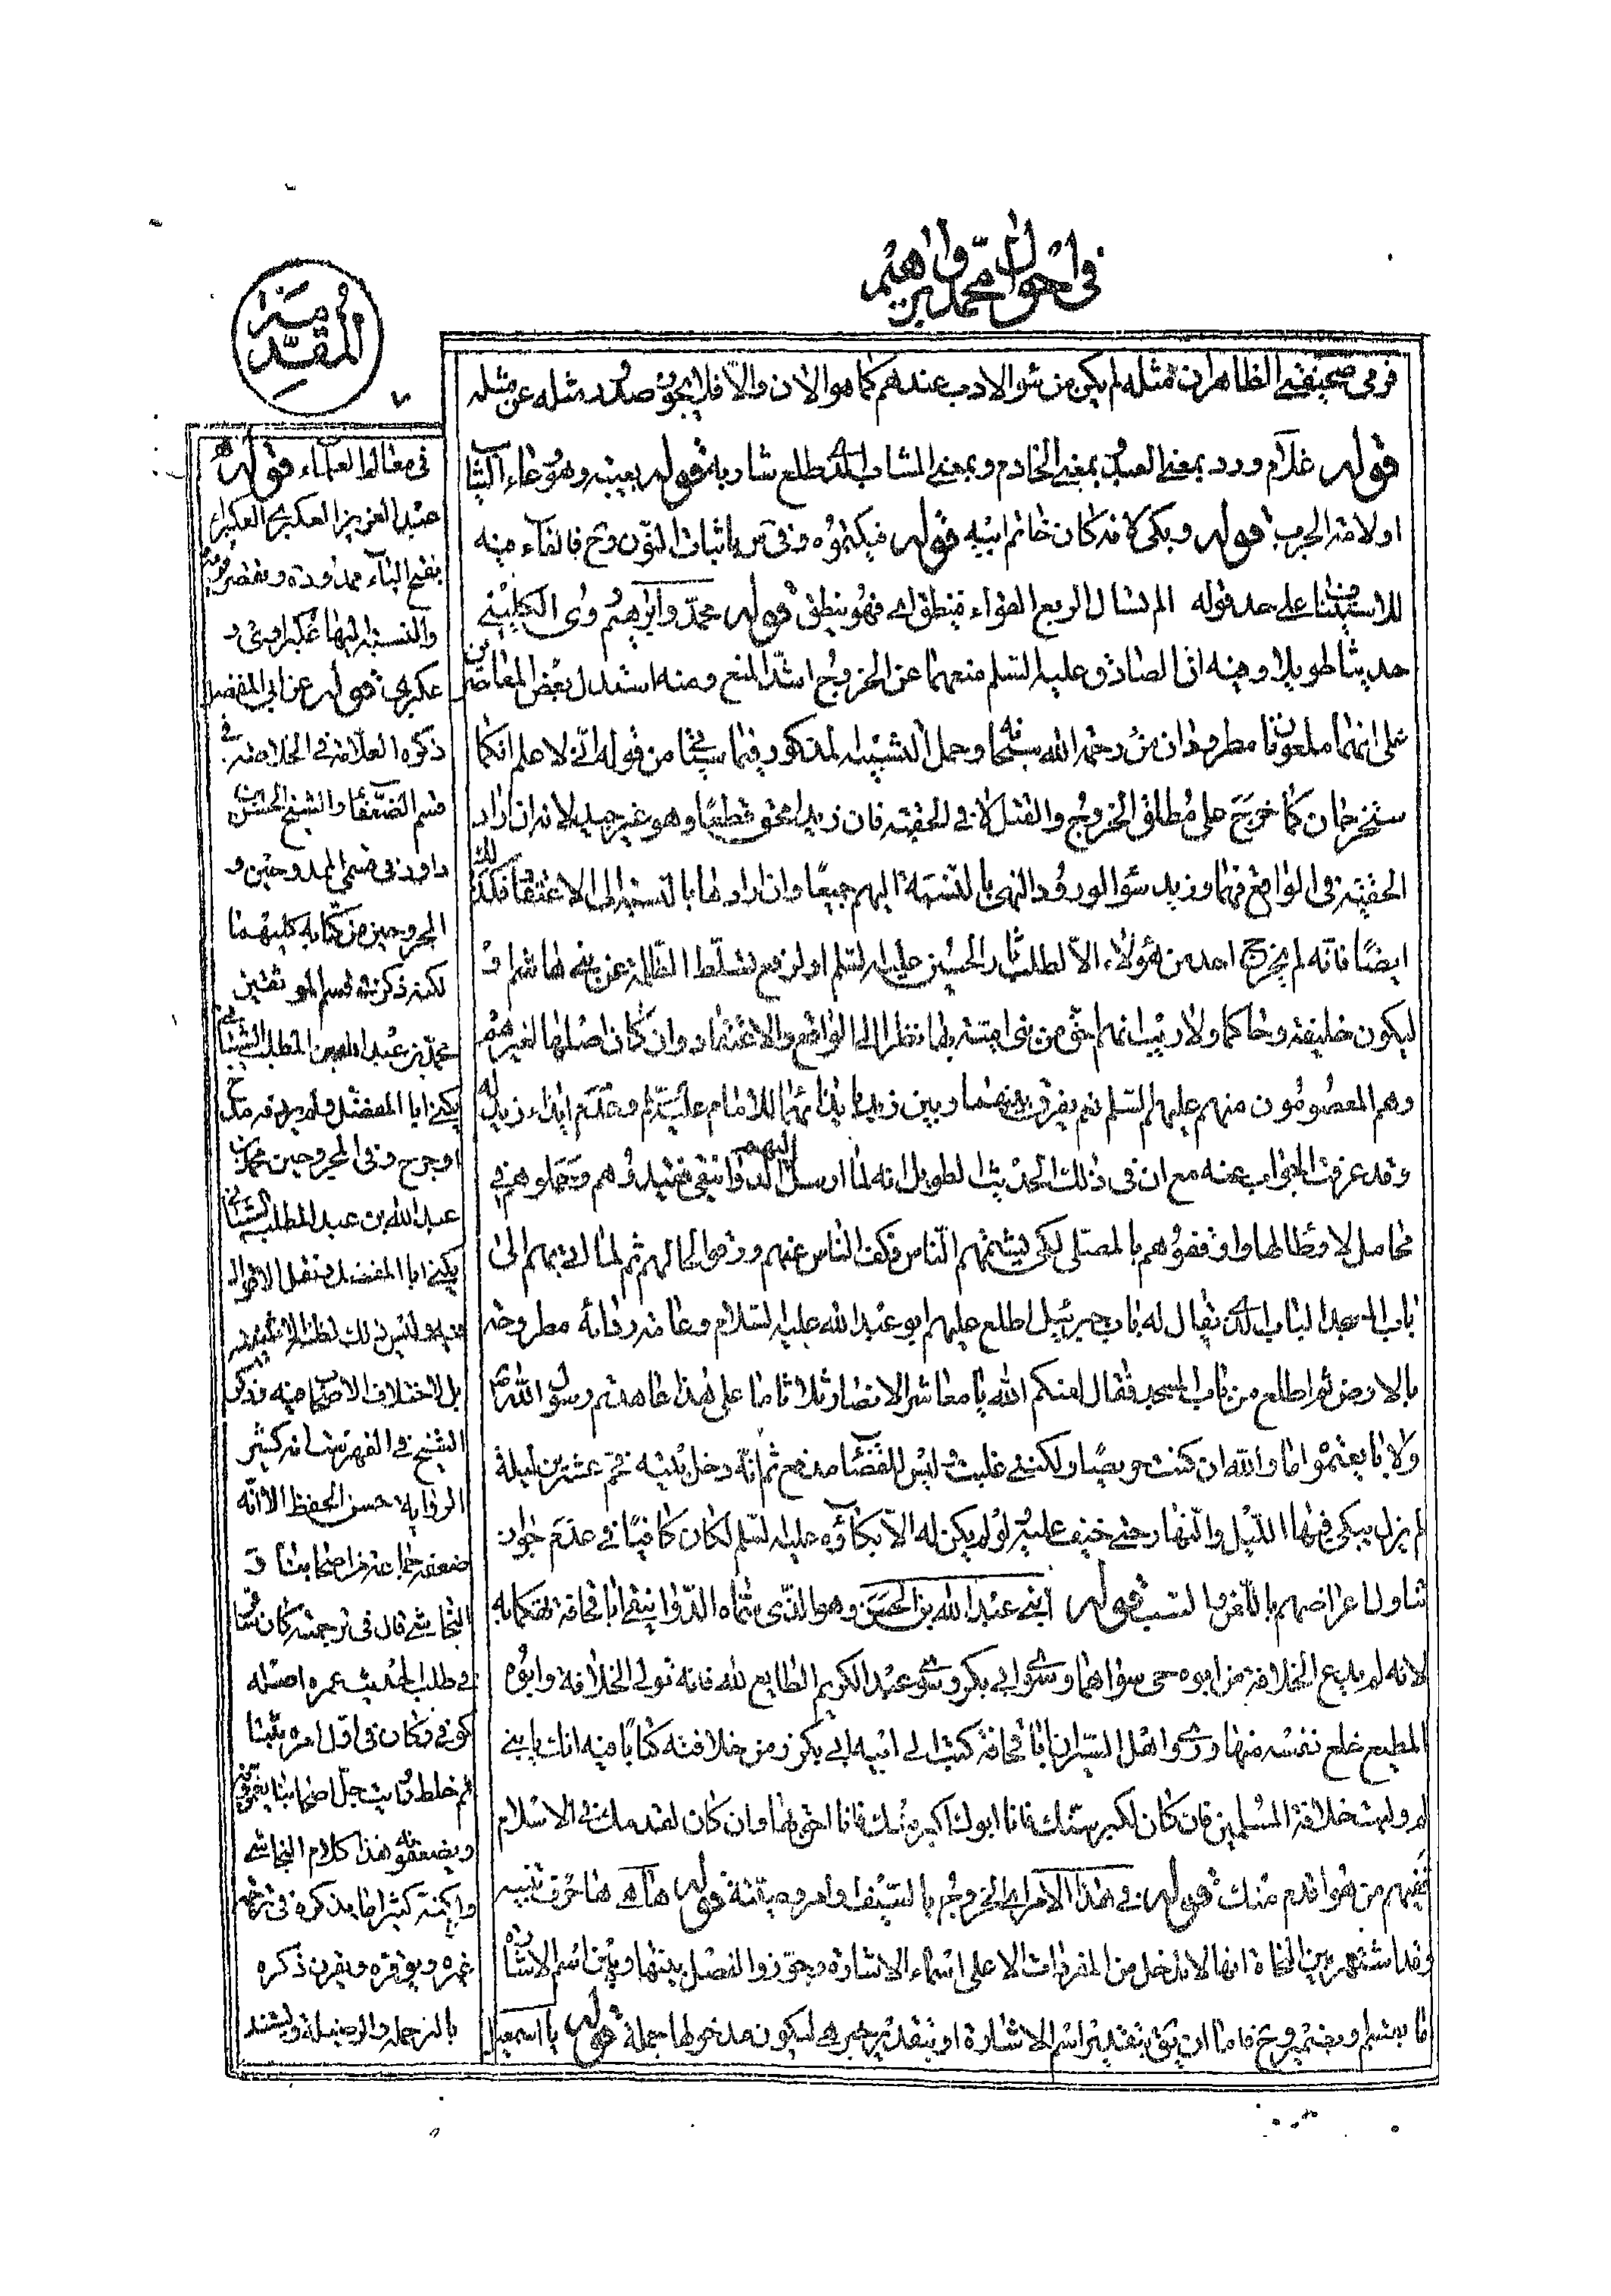 في احوال محمد و ابراهيم
المقدمة
٧
فرمى صحيفتي الظاهر ان مثله لم يكن من سوء الادب عندهم كما هو الان والا فلا يجوز صدور مثله عن مثله
قوله غلام ورد بمعنى العبد و بمعنى الخادم و بمعنى الشاب الذي طلع شاربه قوله بعيبه وهو وعاء الثياب
او لامة الحرب قوله وبكى قد كان خاتم ابيه قوله فيكتموه و في باثبات النون وح فالفاء فيه
للاستيناف على حد قوله الم تسال الربع القواء فينطق اى فهو ينطق قوله محمد وابرهيم روى الكليني
حديثا طويلا وفيه ان الصادق عليه السلم منعهما عن الخروج اشد المنع ومنه استدل بعض المعاصرين
على انهما ملعونان مطرودان من رحمة الله سبحانه وحمل التشبيه المذكور فيما سيجئ من قوله اني لاعلم انكما
ستخرجان كما خرج على مطلق الخروج والقتل لا في الحقية فان زيدا محق قطعا وهو غير جيد لانه ان اراد
الحقية في الواقع فهما وزيد سواء لورود النهى بالنسبة اليهم جميعا وان ارادها بالنسبة الى الاعتقاد فكذلك
ايضا فانه لم يخرج احد من هؤلاء الا لطلب ثار الحسين عليه السلم او لرفع تسلط الظلمة عن بني هاشم او
ليكون خليفة وحاكما ولا ريب انهم احق من بني امية بها نظرا الى الواقع والاعتقاد وان كان اصلها لغيرهم
وهم المعصومون منهم عليهم السلم نعم يفرق بينهما وبين زيد بايذائهما للامام عليه السلم وعدم ايذاء زيد له
وقد عرفت الجواب عنه مع ان في ذلك الحديث الطويل انه لما ارسل اليهم الدوانيقي فقيدوهم وحملوهم في
محامل لا وطاء لها واوقفوهم بالمصلى لكي يشتمهم الناس فكف الناس عنهم ورقوا لحالهم ثم لما اتى بهم الى
باب المسجد الباب الذي يقال له باب جبرئيل اطلع عليهم ابو عبد الله عليه السلام وعامة ردائه مطروحة
بالارض ثم اطلع من باب المسجد فقال لعنكم الله يا معاشر الانصار ثلاثا ما على هذا عاهدتم رسول الله ص
ولا بايعتموه اما والله ان كنت حريصا ولكني غلبت وليس للقضاء مدفع ثم انه دخل بيته فحم عشرين ليلة
لم يزل يبكى فيها الليل والنهار حتى خيف عليه ولو لم يكن له الا بكاؤه عليه السلم لكان كافيا في عدم جواز
تناول اعراضهم باللعن والسب قوله ابني عبد الله بن الحسن وهو الذي سماه الدوانيقي ابا قحافة تهكما به
لانه لم يدع الخلافة من ابوه حى سواهما وسوى ابي بكر وسوى عبد الكريم الطايع لله فانه تولى الخلافة وابوه
المطيع خلع نفسه منها وروى اهل السير ان ابا قحافة كتب الى ابنه ابي بكر زمن خلافته كتابا فيه انك يا بني
لم وليت خلافة المسلمين فان كان لكبر سنك فانا ابوك اكبر منك فانا احق بها وان كان لتقدمك في الاسلام
ففيهم من هو اقدم منك قوله في هذا الامر اى الخروج بالسيف وامر وصيتنة قوله هاهى ها حرف تنبيه
وقد اشتهر بين النحاة انها لا تدخل من المفردات الا على اسماء الاشارة ويجوز الفصل بينها وبين اسم الاشارة
بالقسم وبضمير وح فاما ان يكون بتقدير اسم الاشارة او بتقدير خبر هى ليكون مدخولها جملة قوله يا اسمعيل
في مقال العلماء قوله
عبد العزيز العكبرى العكبراء
بفتح الباء ممدودة ويقصر قرية
والنسبة اليها عكبراوى و
عكبرى قوله عن ابي المفضل
ذكره العلامة في الخلاصة في
قسم الضعفاء والشيخ الحسن بن
داود في قسمى الممدوحين و
المجروحين من كتابه كليهما
لكنه ذكر في قسم الموثقين
محمد بن عبد الله بن المطلب الشيباني
يكنى ابا المفضل ولم يردفه بمدح
او جرح وفي المجروحين محمد بن
عبد الله بن عبد المطلب الشيباني
يكنى ابا المفضل ونقل الاقوال
فيه وليس ذلك لظنه الاثنينية
بل لاختلاف الاصحاب فيه فذكر
الشيخ في الفهرست انه كثير
الرواية حسن الحفظ الا انه
ضعفه جماعة من اصحابنا و
النجاشي قال في ترجمته كان سافر
في طلب الحديث عمره اصله
كوفي وكان في اول امره ثبتا
ثم خلط ورايت جل اصحابنا يغمزونه
ويضعفونه هذا كلام النجاشي
ولكنه كثيرا ما يذكره في ترجمة
غيره ويوقره ويقرن ذكره
بالترحم والوصيلة ويستند